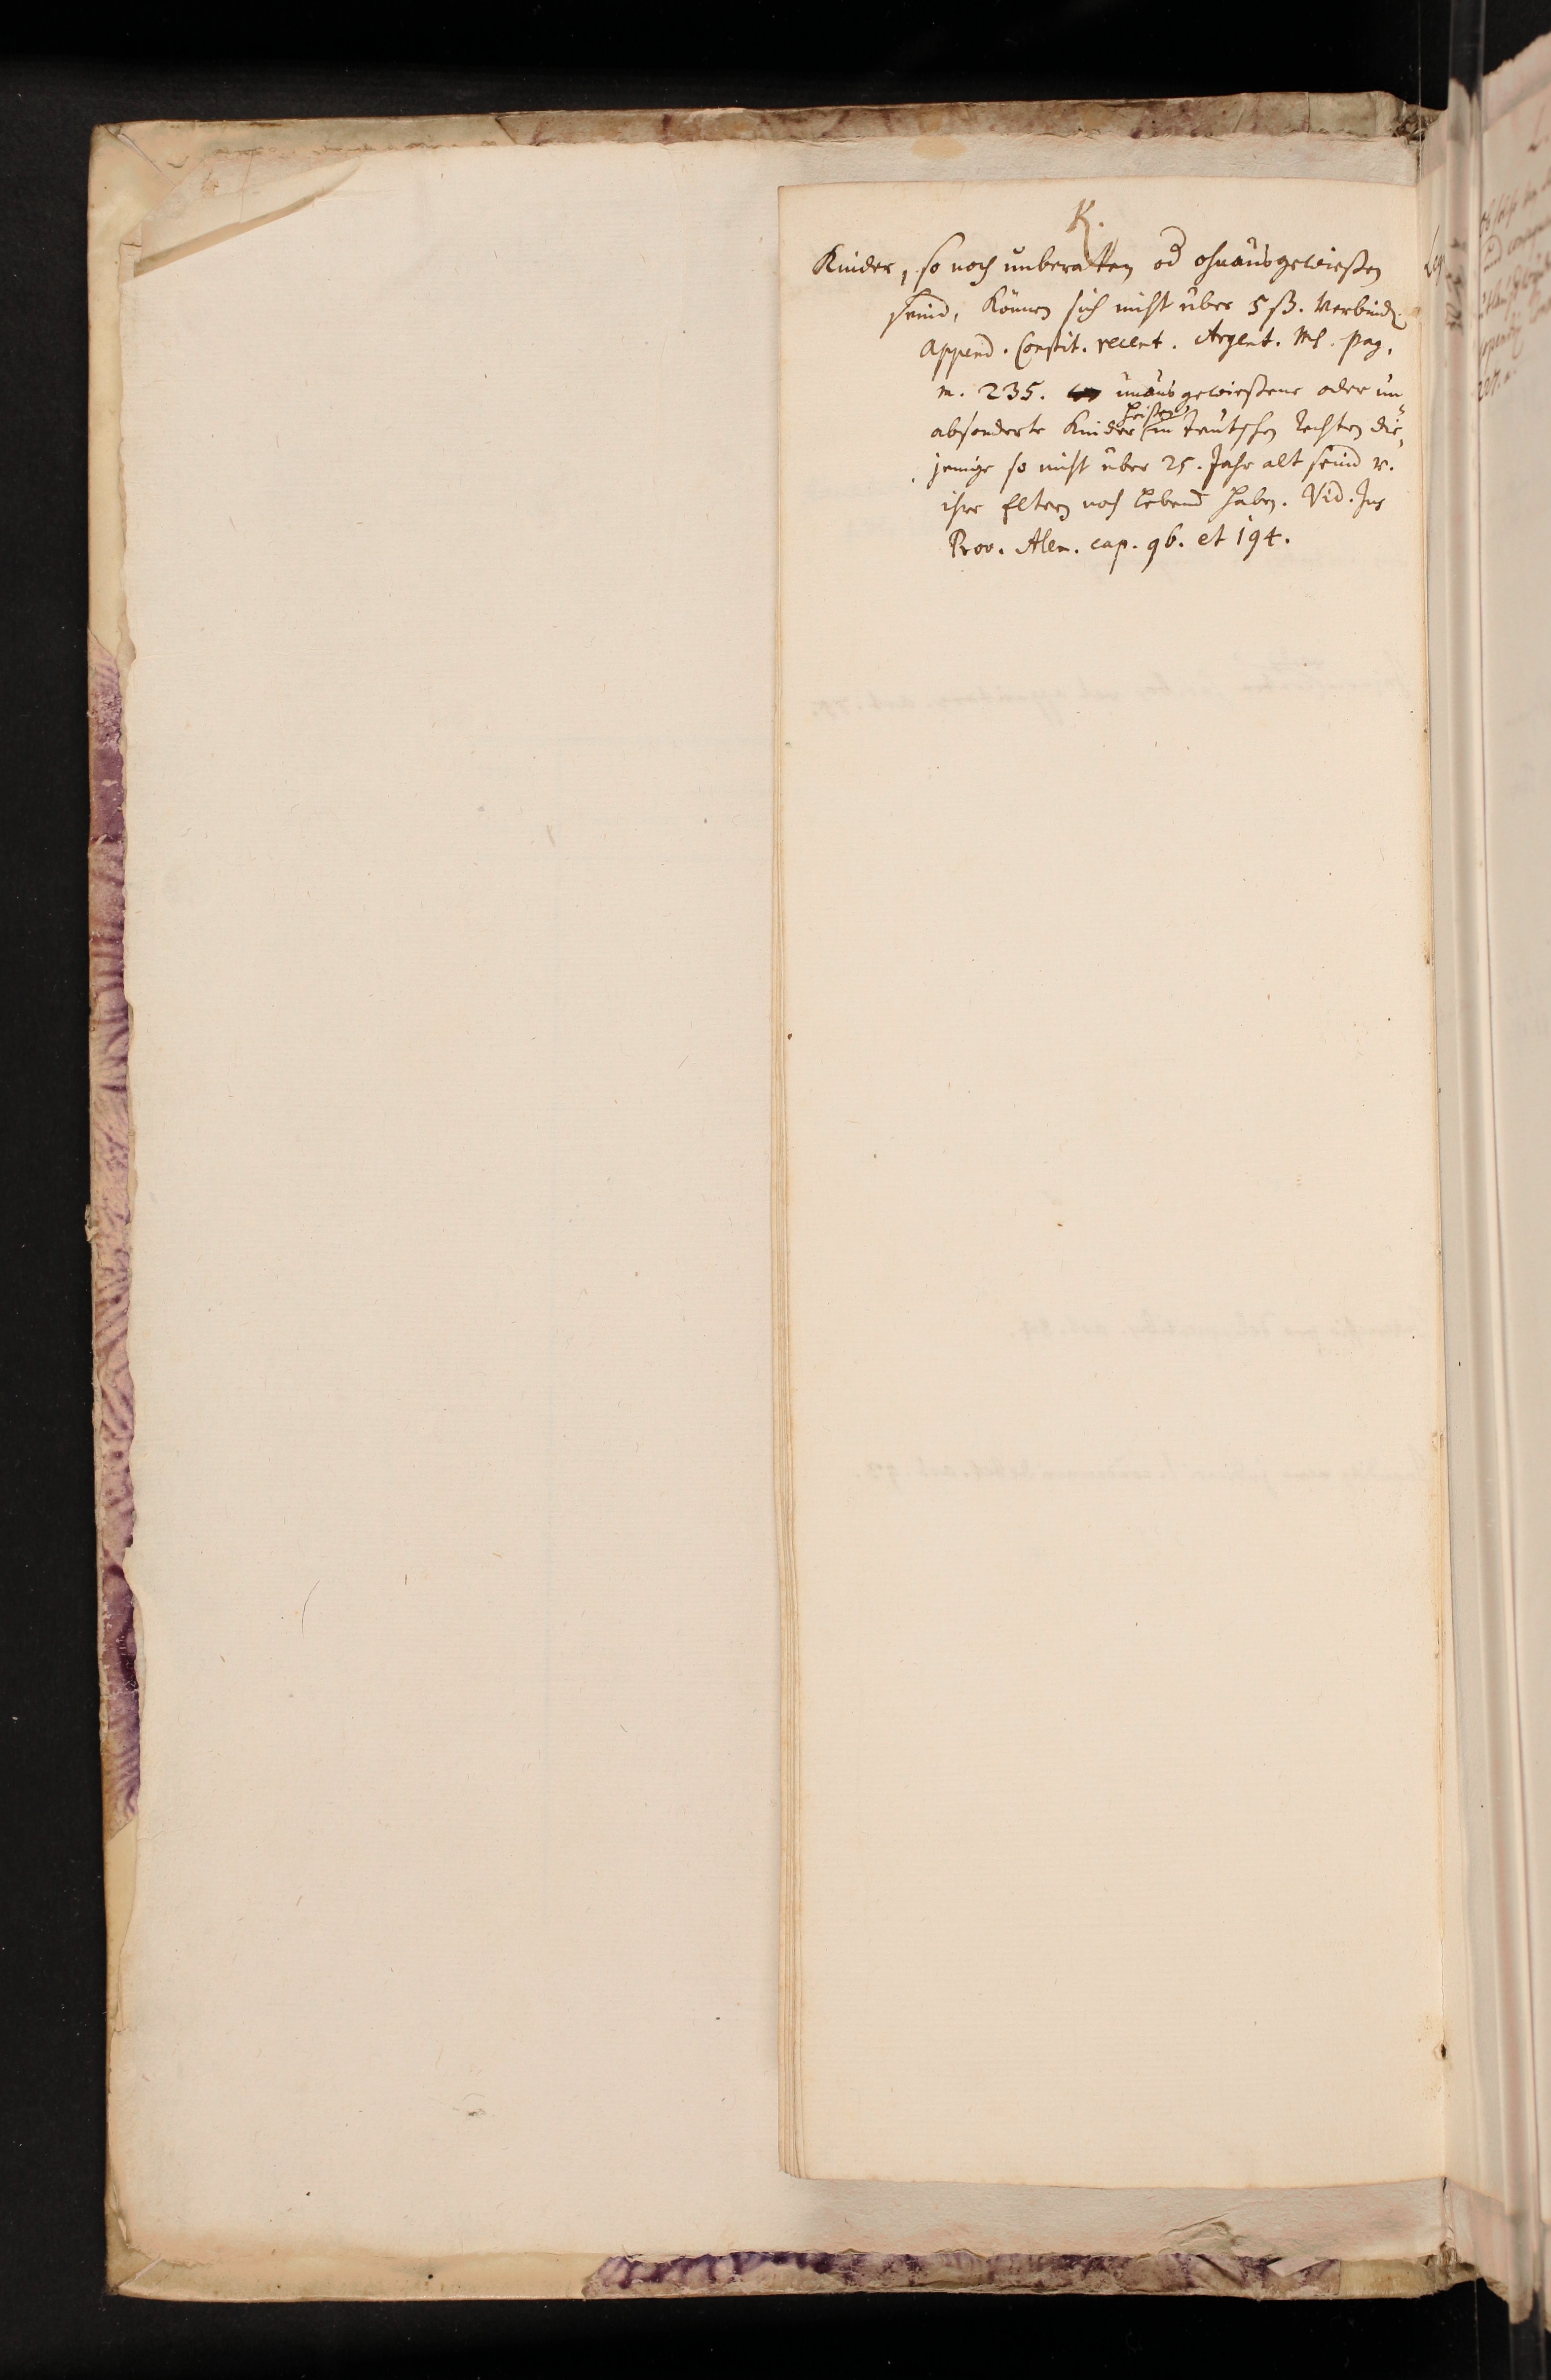 K.
Kinder, so noch unberatten od ohnausgewießen
seind, können sich nicht über 5 ß. verbindẽ.
Append. Constit. recent. Argent. Ms. pag.
m. 235. unausgewießene oder un-
absonderte Kinder heißen in teutschen rechten die-
jenige so nicht über 25. Jahr alt seind v.
ihre Eltern noch lebend haben. Vid. Jus
Prov. Alem. cap. 96. et 194.